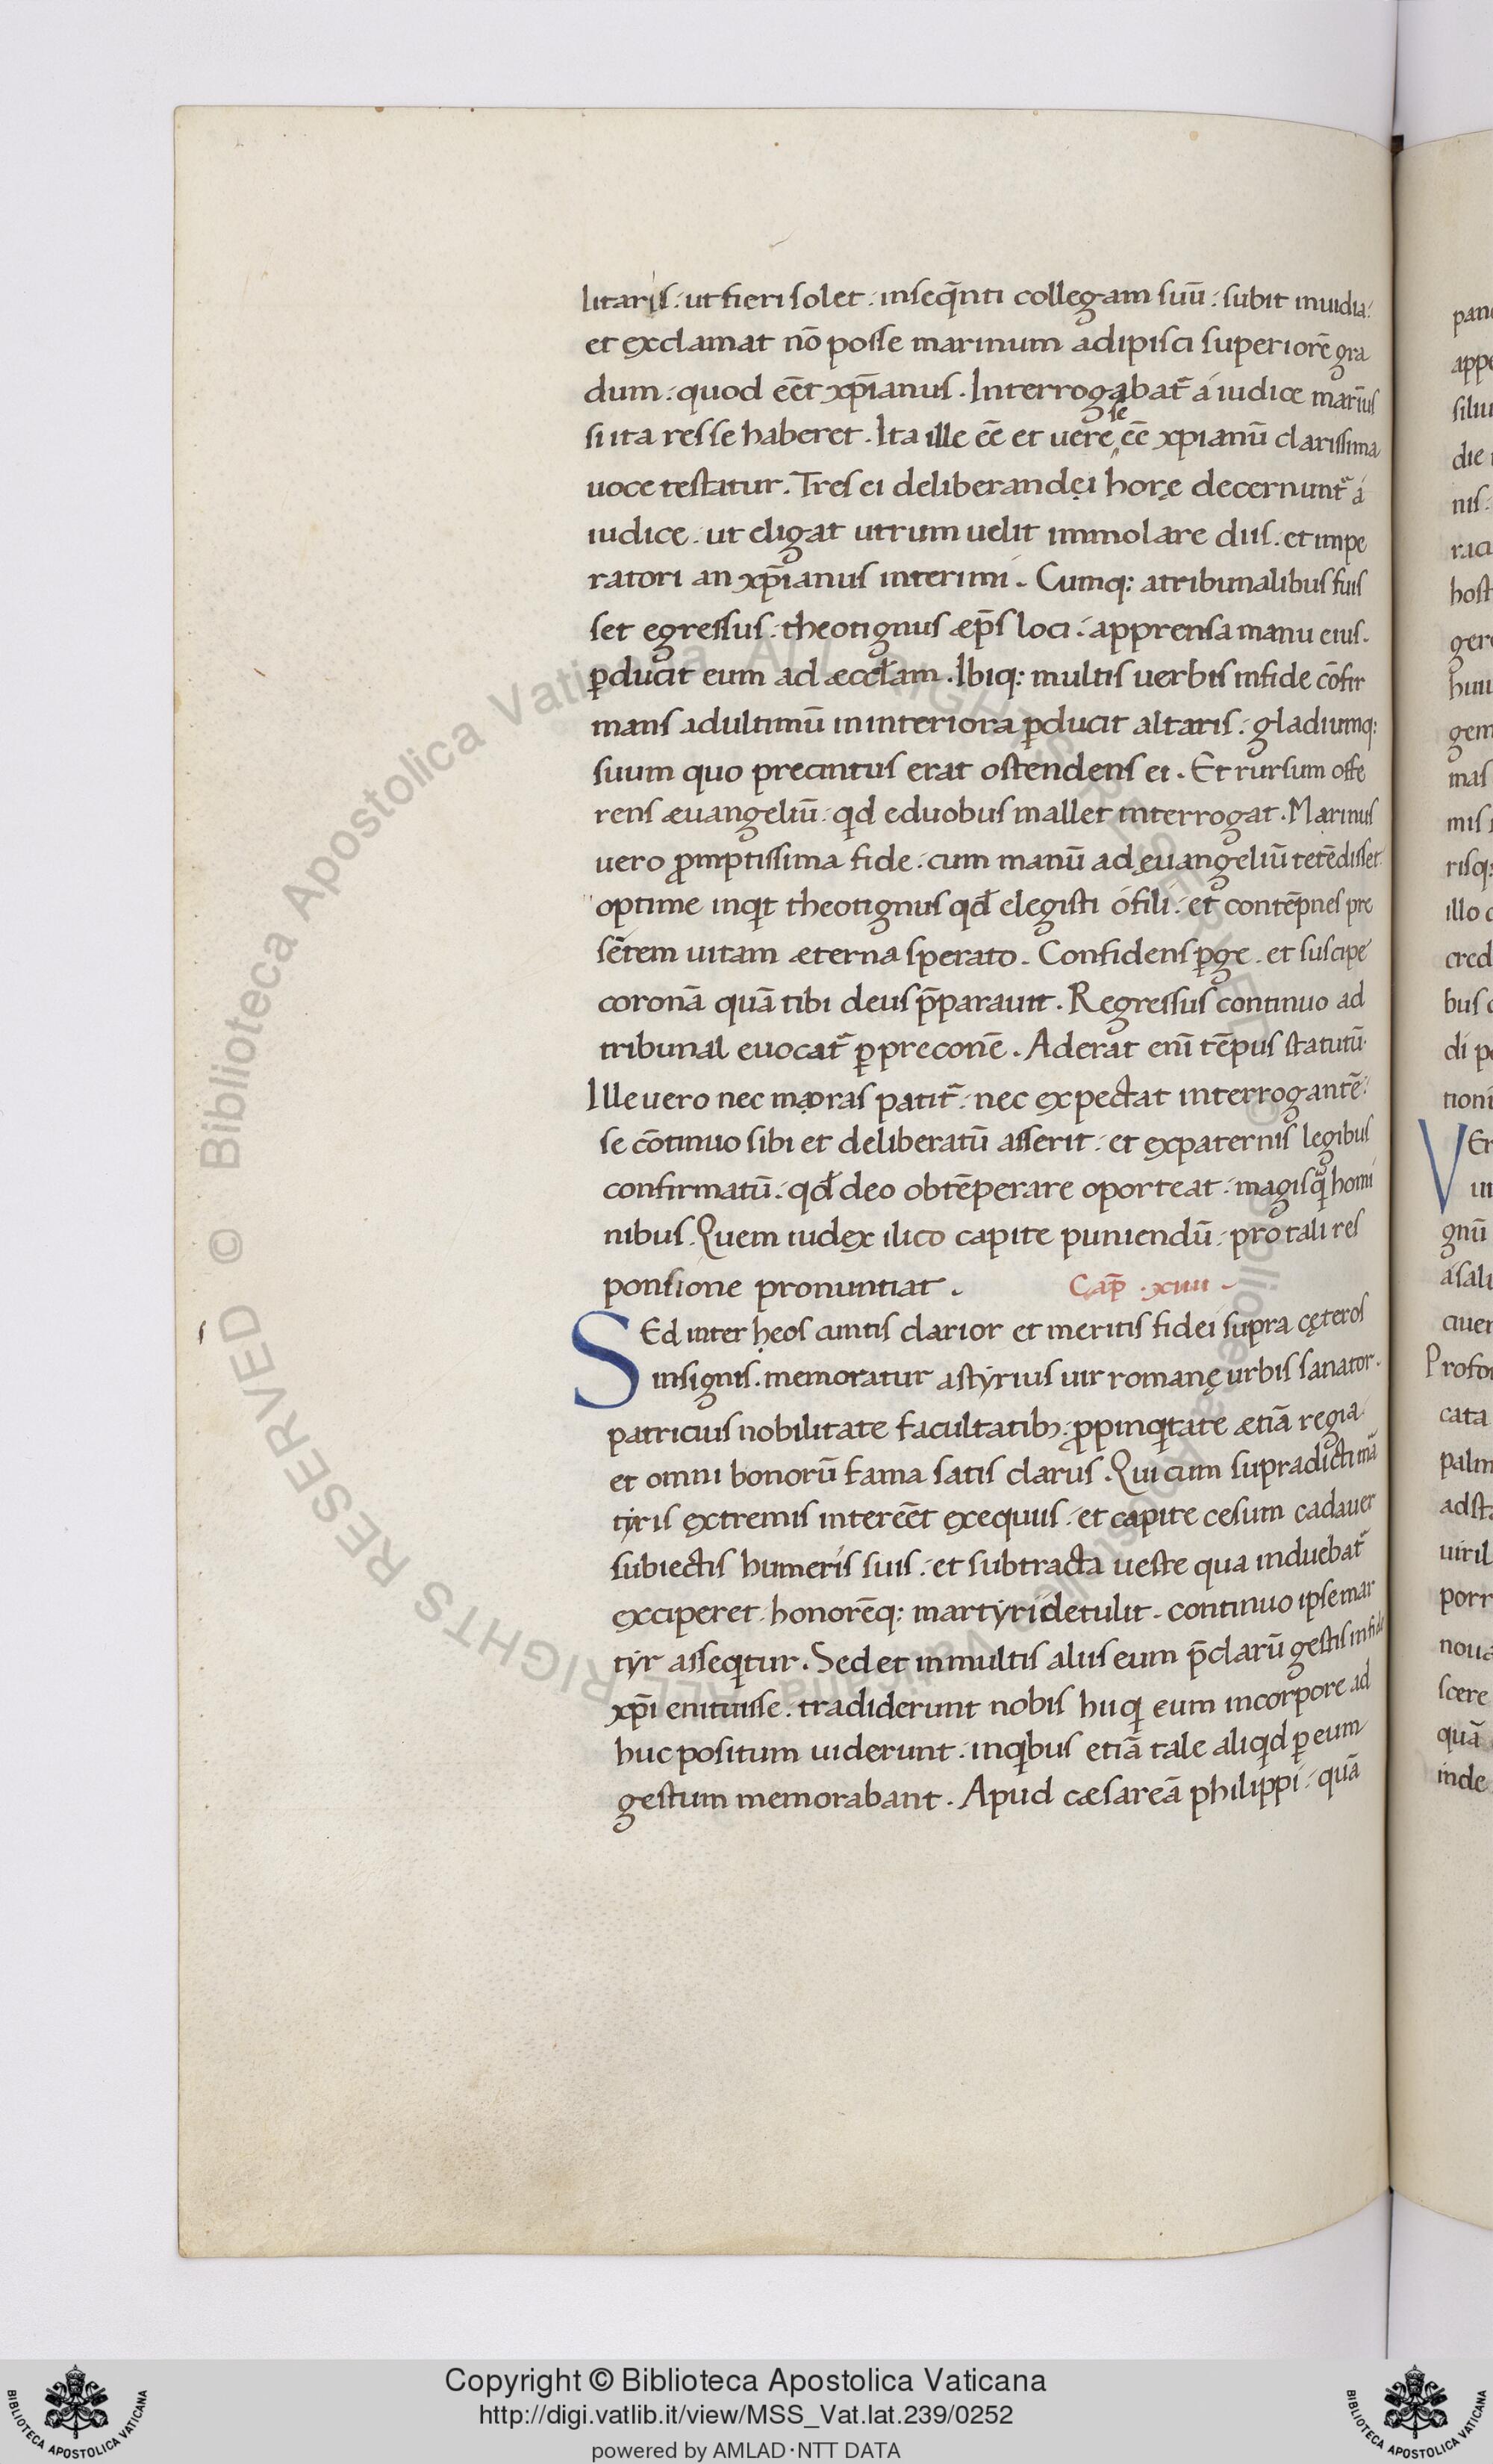 litaris: ut fieri solet: inseq̄nti collegam suū: subit inuidia:
et exclamat nō posse marinum adipisci superiorē gra
dum: quod eēt xp̄ianus. Interrogabat᷑ a iudice marīus
si ita res se haberet. Ita ille eē et uere se eē xpianū clarissima
uoce testatur. Tres ei deliberandęi horę decernunt᷑ a
iudice. ut eligat utrum uelit immolare diis. et impe
ratori an xp̄ianus interimi. Cumq: a tribunalibus fuis
set egressus: theotignus æp̄s loci: apprensa manu eius.
ꝑducit eum ad æccl̄am. Ibiq: multis uerbis in fide cōfir
mans ad ultimū in interiora ꝑducit altaris: gladiumq:
suum quo precintus erat ostendens ei. Et rursum offe
rens æuangeliū: qd e duobus mallet interrogat. Marinus
uero ꝓmptissima fide: cum manū ad ęuangeliū tetēdisset.
optime inqt theotignus qđ elegisti o fili: et contēpnes pre
sētem uitam æterna sperato. Confidens ꝑge. et suscipe
coronā quā tibi deus p̄parauit. Regressus continuo ad
tribunal euocat᷑ ꝑ preconē. Aderat enī tēpus statutū.
Ille uero nec maoras patit᷑: nec expectat interrogantē:
se cōtinuo sibi et deliberatū asserit: et ex paternis legibus
confirmatū: qđ deo obtēperare oporteat: magis qᷓ homi
nibus. Quem iudex ilico capite puniendū: pro tali res
ponsione pronuntiat. Cap̄ .xiiii.
SEd inter heos cuntis clarior et meritis fidei supra cęteros
insignis. memoratur astyrius uir romanę urbis sanator.
patricius nobilitate facultatib;: ꝓpinqtate ætiā regia
et omni bonorū fama satis clarus. Qui cum supradicti mā
tyris extremis intereēt exequiis: et capite cesum cadauer
subiectis humeris suis: et subtracta ueste qua induebat᷑
exciperet: honorēq: martyri detulit. continuo ipse mar
tyr asseqtur. Sed et in multis aliis eum p̄clarū gestis in fide
xp̄i enituisse. tradiderunt nobis hii q eum in corpore ad
huc positum uiderunt: in qbus etiā tale aliqd ꝑ eum
gestum memorabant. Apud cæsareā philippi: quā
Copyright © Biblioteca Apostolica Vaticana
http://digi.vatlib.it/view/MSS_Vat.lat.239/0252
powered by AMLAD·NTT DATA